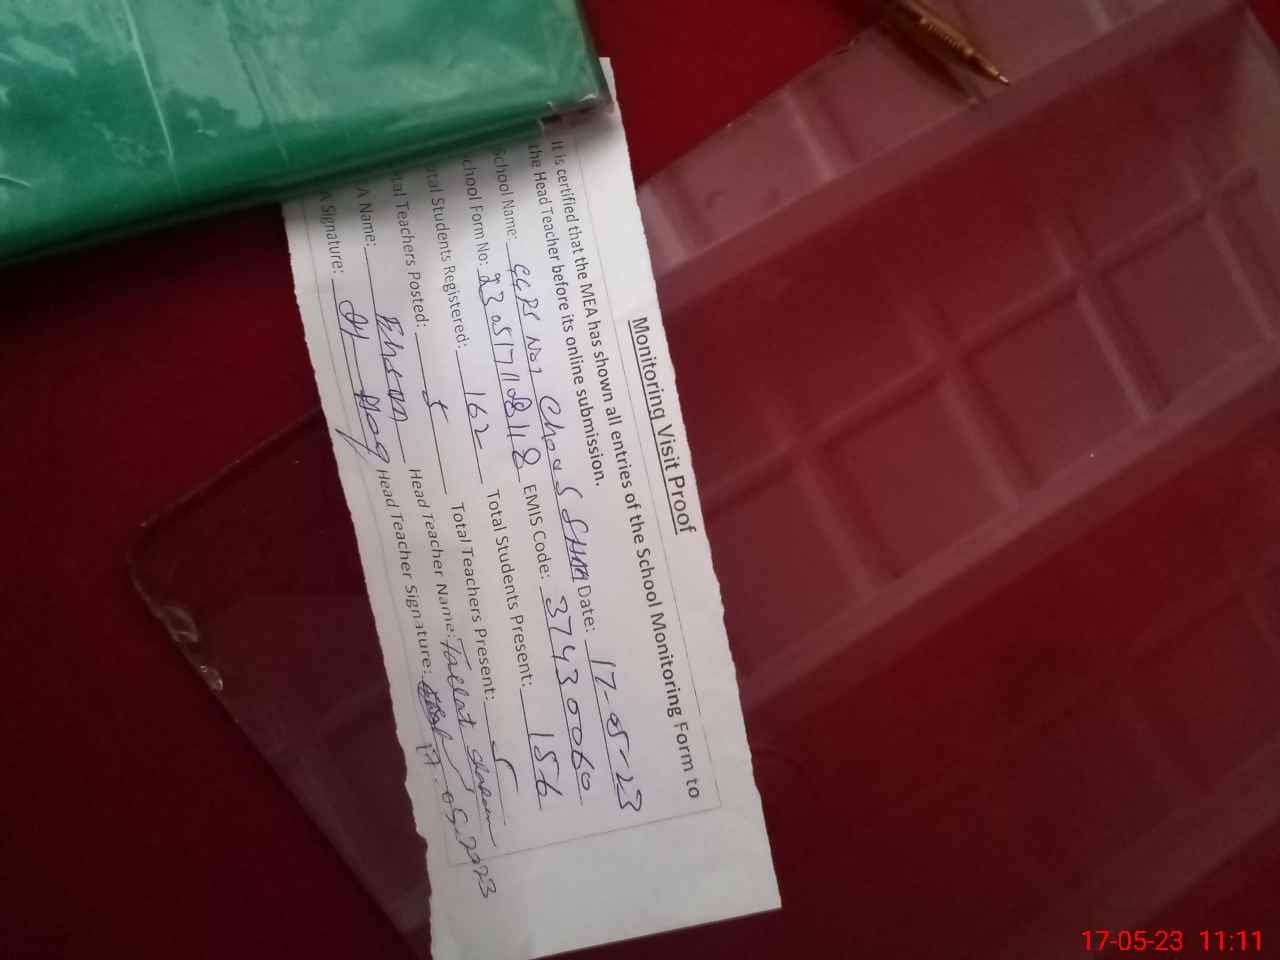 Monitoring Visit Proof
It is certified that the MEA has shown all entries of the School Monitoring Form to
the Head Teacher before its online submission.
School Name: GGPS No1 Choa S Shah Date: 17-05-23
chool Form No: EMIS Code: 37430060
otal Students Registered: 162 Total Students Present: 156
tal Teachers Posted: 5 Total Teachers Present: 5
A Name: Ehsan Head Teacher Name: Tallat
A Signature: Head Teacher Signature: 17-05-2023
17-05-23 11:11